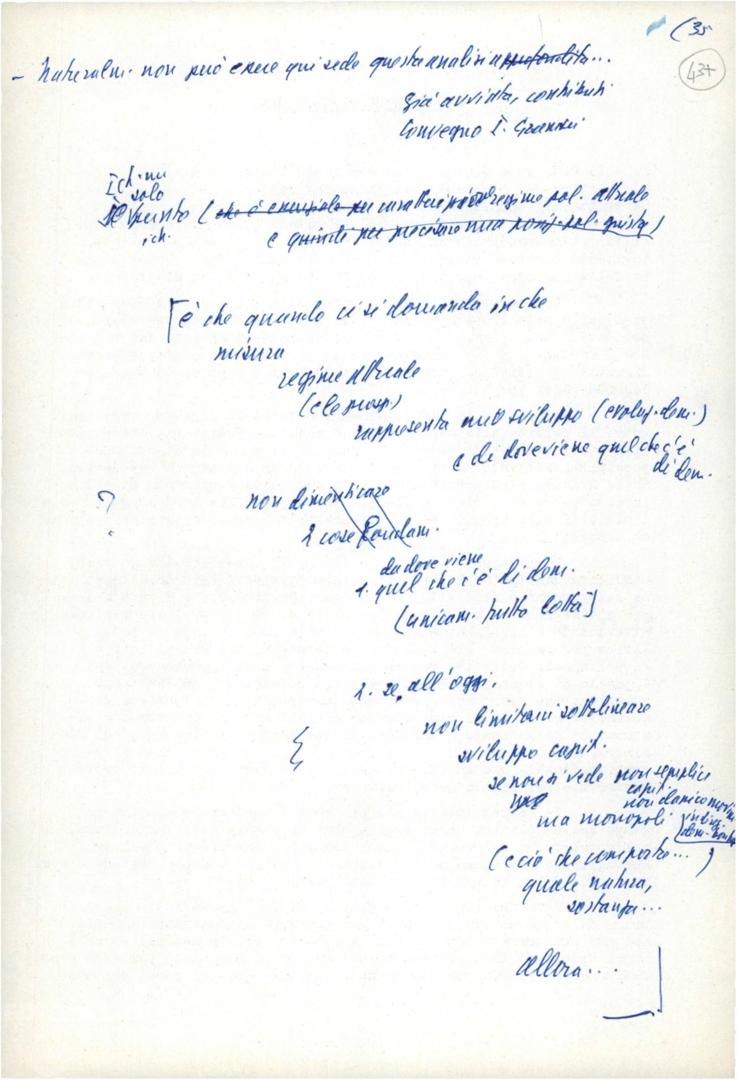 (35
43+
– Naturalm. non può essere qui sede questa analisi approfondita...
già avviata, contributi
Convegno I. Gramsci
Ich. mu
solo
Il punto (che è essenziale per caratteri regime pol. attuale
ich. e quindi per precisare una posiz. pol. giusta)
è che quando ci si domanda in che
misura
regime attuale
(e le prosp.)
rappresenta uno sviluppo (evoluz. dem.)
e di dove viene quel che c'è
di dem.
? non dimenticare
2 cose fondam.
da dove viene
1. quel che c'è di dem.
(unicam. frutto lotta)
2. se, all'oggi,
non limitarci sottolineare
sviluppo capit.
se non si vede non semplice
capit.
non classico
ma monopoli
(e ciò che comporta...)
quale natura,
sostanza...
allora...